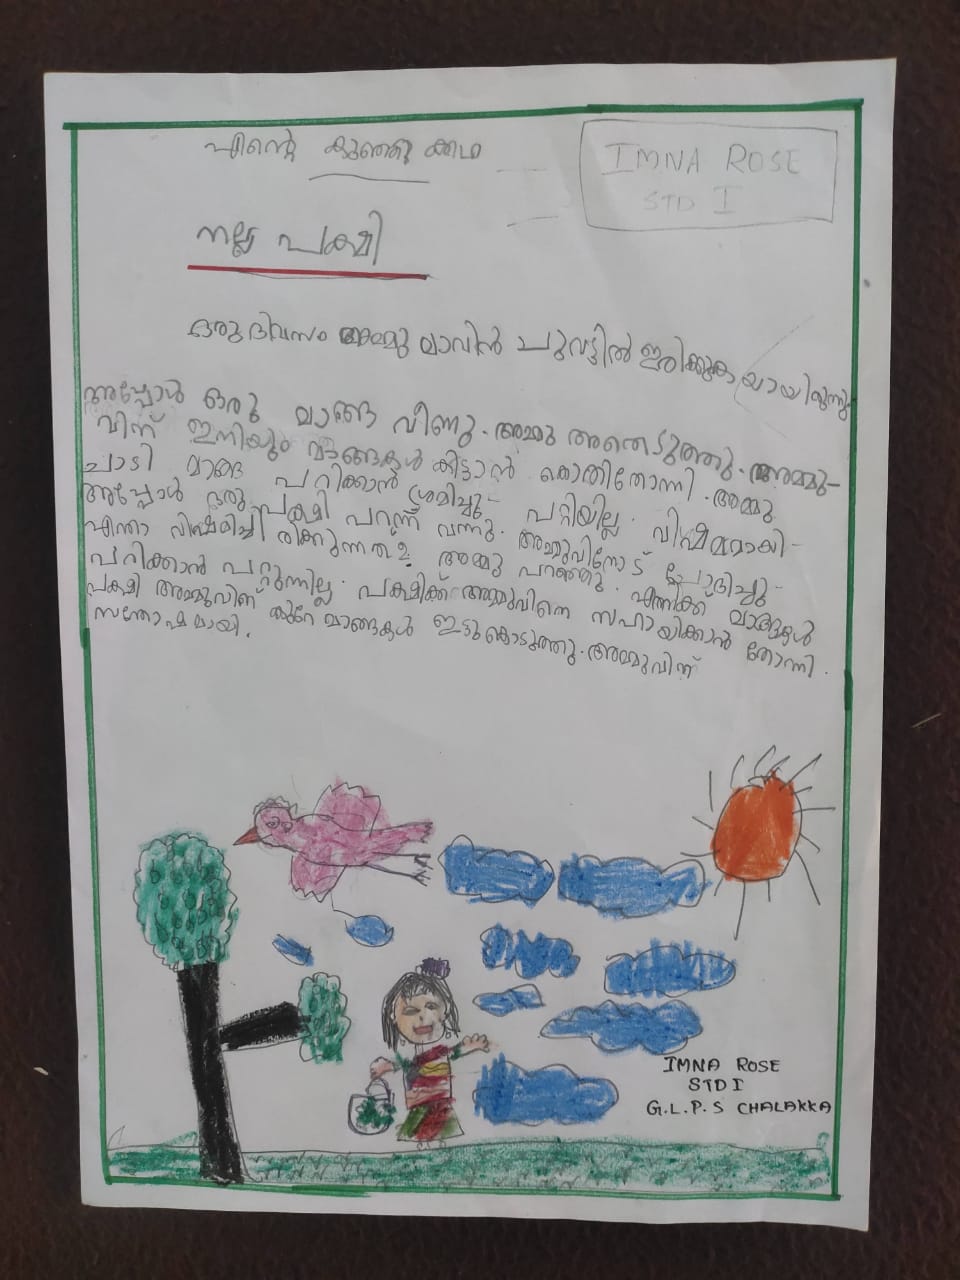 എന്റെ കുഞ്ഞു കഥ
IMNA ROSE
STD I
നല്ല പക്ഷി
ഒരു ദിവസം അമ്മു മാവിൻ ചുവട്ടിൽ ഇരിക്കുകയായിരുന്നു.
അപ്പോൾ ഒരു മാങ്ങ വീണു. അമ്മു അതെടുത്തു. അമ്മു-
വിന് ഇനിയും മാങ്ങകൾ കിട്ടാൻ കൊതിതോന്നി. അമ്മു
ചാടി മാങ്ങ പറിക്കാൻ ശ്രമിച്ചു- പറ്റിയില്ല. വിഷമമായി-
അപ്പോൾ ഒരു പക്ഷി പറന്ന് വന്നു. അമ്മുവിനോട് ചോദിച്ചു-
എന്താ വിഷമിച്ചിരിക്കുന്നത്? അമ്മു പറഞ്ഞു. എനിക്ക് മാങ്ങകൾ
പറിക്കാൻ പറ്റുന്നില്ല. പക്ഷിക്ക് അമ്മുവിനെ സഹായിക്കാൻ തോന്നി.
പക്ഷി അമ്മുവിന് കുറേ മാങ്ങകൾ ഇട്ടുകൊടുത്തു. അമ്മുവിന്
സന്തോഷമായി.
IMNA ROSE
STD I
G.L.P.S CHALAKKA